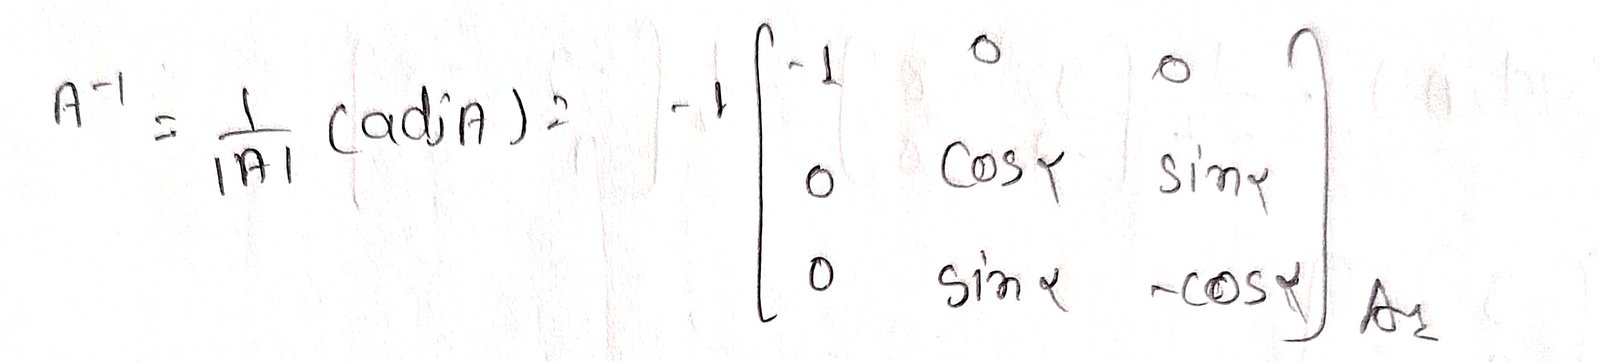 A⁻¹ = 1/|A| (adjA) = -1 [ -1 0 0
0 cosγ sinγ
0 sinγ -cosγ ]